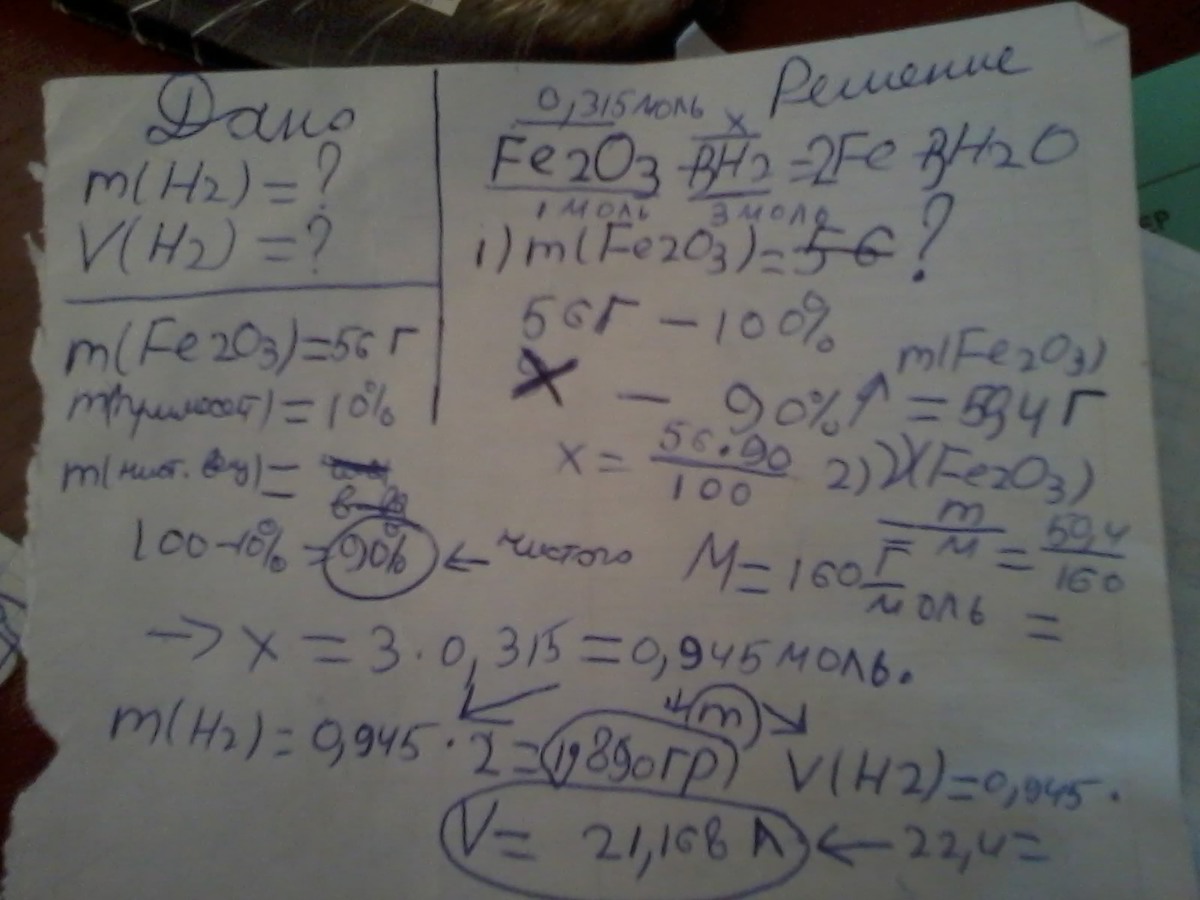 Дано
m(H2) = ?
V(H2) = ?
m(Fe2O3) = 56 г
= 10%
m( =
100-10% = 90% ← чистого
Решение
0,315 моль x
Fe2O3 + 3H2 = 2Fe + 3H2O
1 моль 3 моль
1) m(Fe2O3) = 56 ?
56 г — 100%
x — 90% ↑ m(Fe2O3) = 50,4 г
x = 56·90/100
2) ν(Fe2O3) = m/M = 50,4/160 =
M = 160 г/моль
→ x = 3·0,315 = 0,945 моль.
m(H2) = 0,945 · 2 = 1,890 гр
(m) V(H2) = 0,945 ·
V = 21,168 л ← 22,4 =